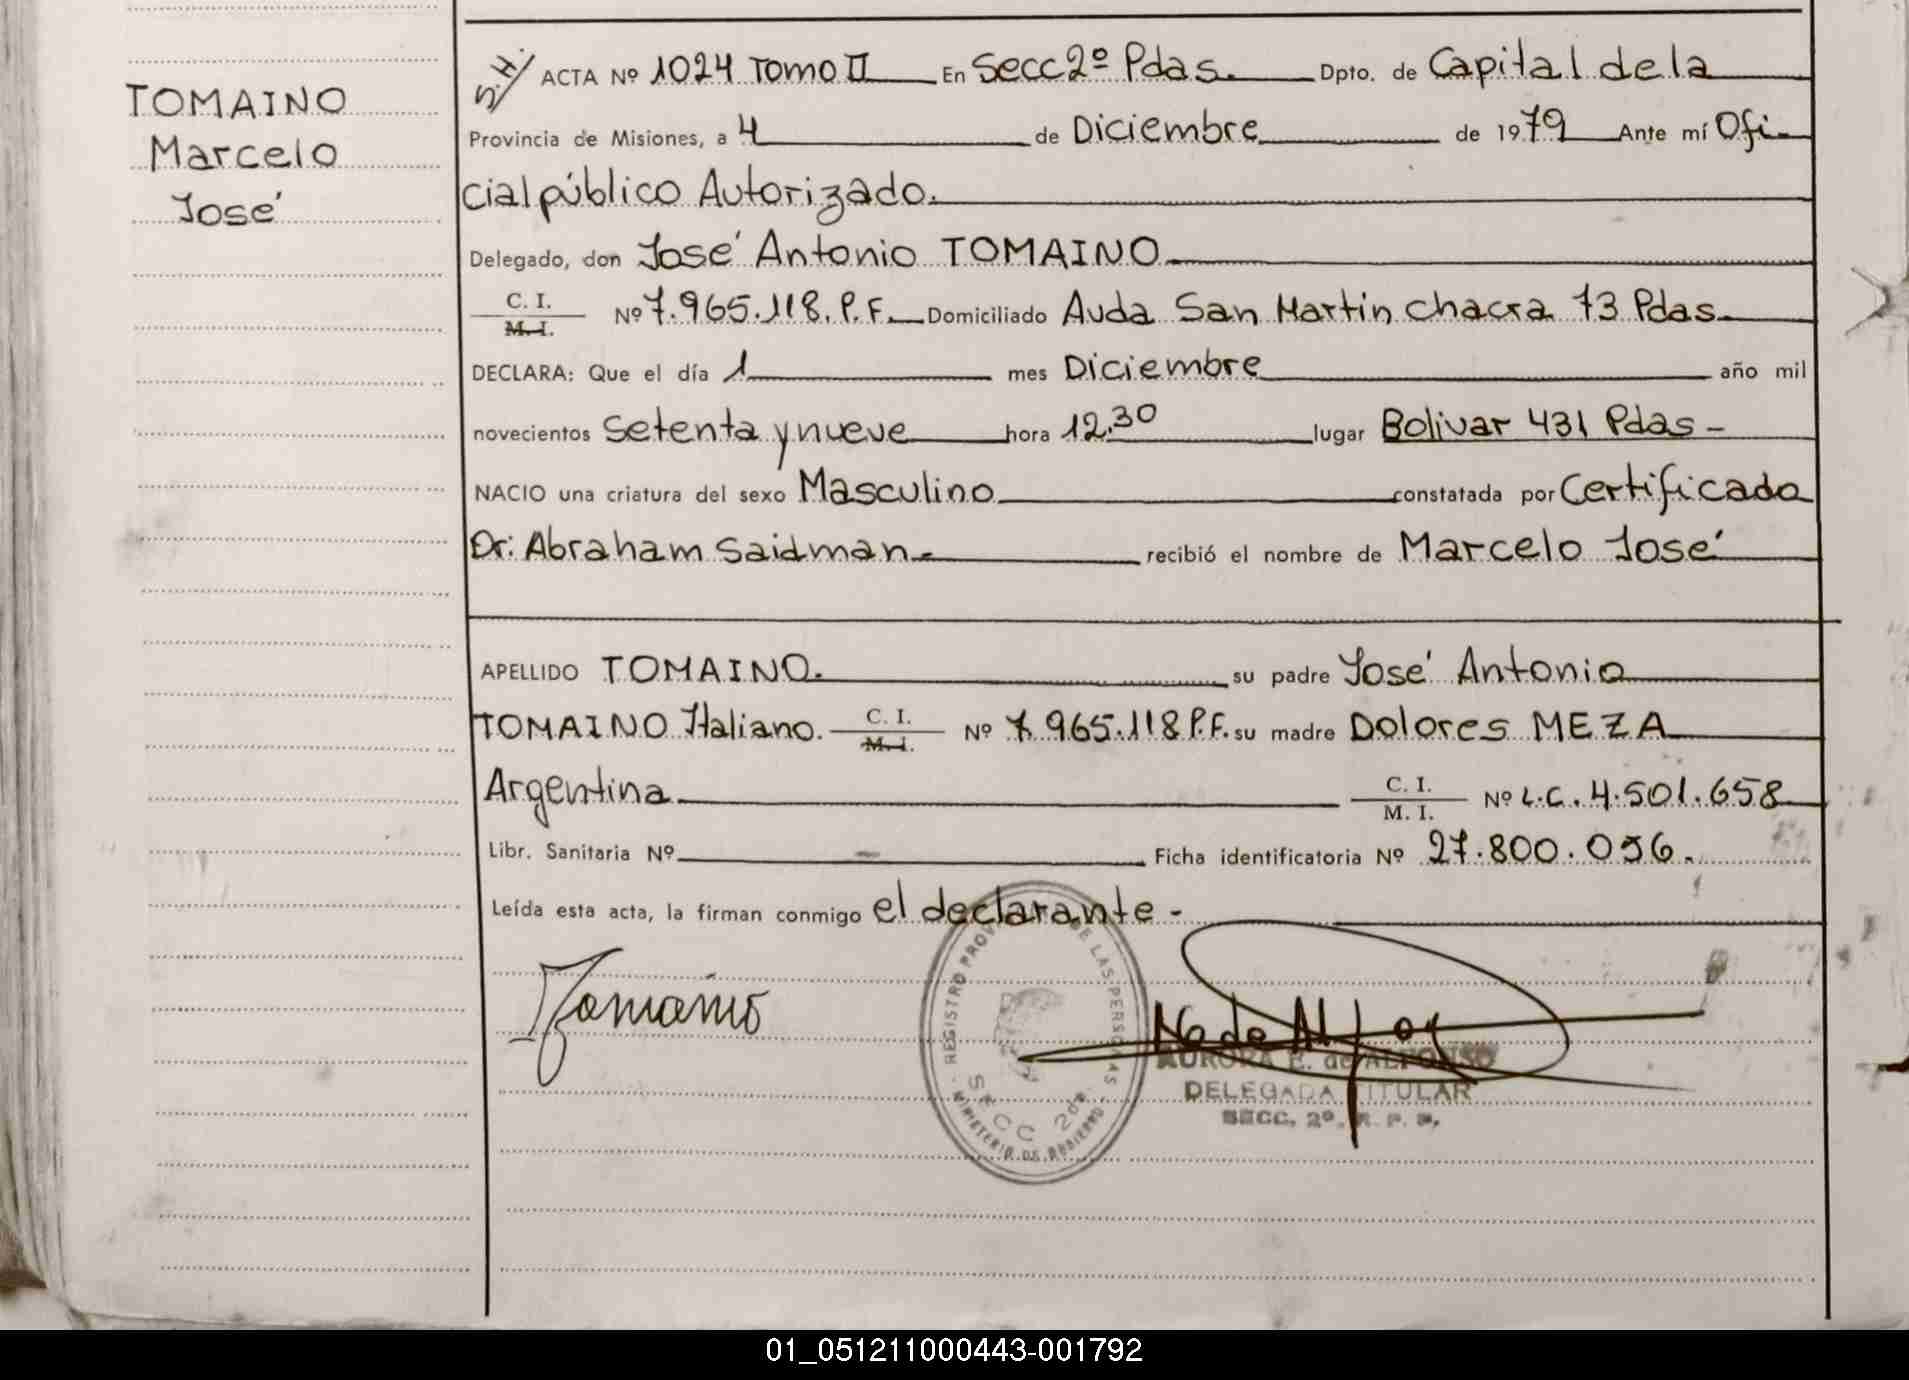 TOMAINO
Marcelo
José
S.H. ACTA Nº 1024 Tomo II En Secc 2º Pdas. Dpto. de Capital de la
Provincia de Misiones, a 4 de Diciembre de 1979 Ante mí Ofi-
cial público Autorizado.
Delegado, don José Antonio TOMAINO
C. I.
M. I. Nº 7.965.118. P. F. Domiciliado Avda San Martin chacra 73 Pdas.
DECLARA: Que el día 1 mes Diciembre año mil
novecientos setenta y nueve hora 12.30 lugar Bolivar 431 Pdas -
NACIO una criatura del sexo Masculino constatada por Certificado
Dr. Abraham Saidman.- recibió el nombre de Marcelo José
APELLIDO TOMAINO. su padre José Antonio
TOMAINO Italiano. C. I.
M. I. Nº 7.965.118 P.F. su madre Dolores MEZA
Argentina C. I.
M. I. Nº L.C. 4.501.658
Libr. Sanitaria Nº - Ficha identificatoria Nº 27.800.056.
Leída esta acta, la firman conmigo el declarante -
Tomaino
REGISTRO DE LAS PERSONAS
SECC 2da
MINISTERIO DE GOBIERNO
AURORA E. de ALFONSO
DELEGADA TITULAR
SECC. 2º. R. P. P.
01_051211000443-001792